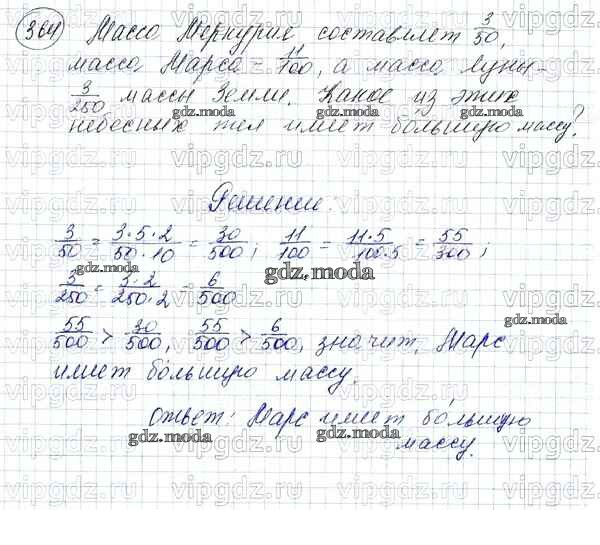 364 Масса Меркурия составляет 3/50,
масса Марса - 11/100, а масса Луны -
3/250 массы Земли. Какое из этих
небесных тел имеет бо́льшую массу?
Решение:
3/50 = 3·5·2/50·10 = 30/500; 11/100 = 11·5/100·5 = 55/500;
3/250 = 3·2/250·2 = 6/500
55/500 > 30/500, 55/500 > 6/500, значит, Марс
имеет бо́льшую массу.
Ответ: Марс имеет бо́льшую
массу.